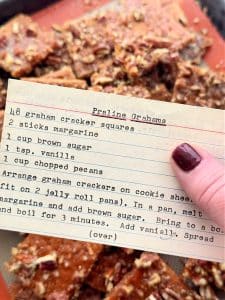 Praline Grahams
48 graham cracker squares
2 sticks margarine
1 cup brown sugar
1 tsp. vanilla
1 cup chopped pecans
Arrange graham crackers on cookie shee
fit on 2 jelly roll pans). In a pan, melt
margarine and add brown sugar. Bring to a bo
and boil for 3 minutes. Add vanilla. Spread
(over)